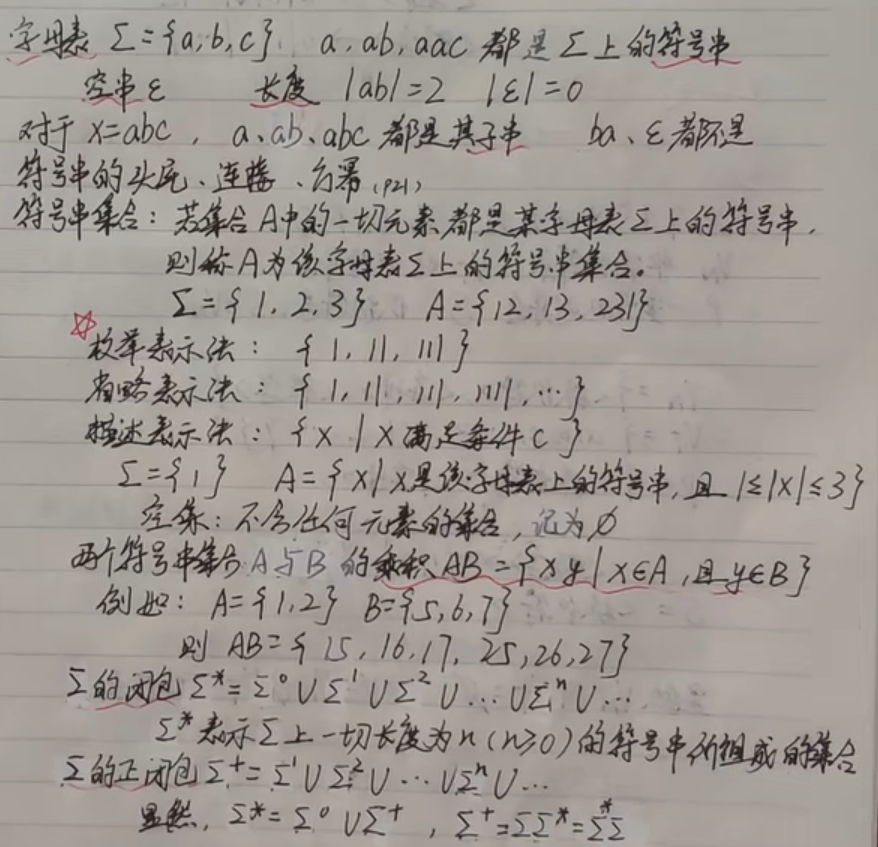 字母表 Σ={a,b,c} a, ab, aac 都是Σ上的符号串
空串ε 长度 |ab|=2 |ε|=0
对于 x=abc, a、ab、abc 都是其子串 ba、ε都不是
符号串的头尾、连接、方幂(P21)
符号串集合：若集合A中的一切元素都是某字母表Σ上的符号串,
则称A为该字母表Σ上的符号串集合。
Σ={1,2,3} A={12,13,231}
☆
枚举表示法： {1,11,111}
省略表示法： {1,11,111,1111,…}
描述表示法： {x|x满足条件c}
Σ={1} A={x|x是该字母表上的符号串,且1≤|x|≤3}
空集：不含任何元素的集合,记为∅
两个符号串集合A与B的乘积AB={xy|x∈A,且y∈B}
例如： A={1,2} B={5,6,7}
则 AB={15,16,17,25,26,27}
Σ的闭包Σ*=Σ⁰∪Σ¹∪Σ²∪…∪Σⁿ∪…
Σ*表示Σ上一切长度为n(n≥0)的符号串所组成的集合
Σ的正闭包Σ⁺=Σ¹∪Σ²∪…∪Σⁿ∪…
显然, Σ*=Σ⁰∪Σ⁺, Σ⁺=ΣΣ*=Σ*Σ